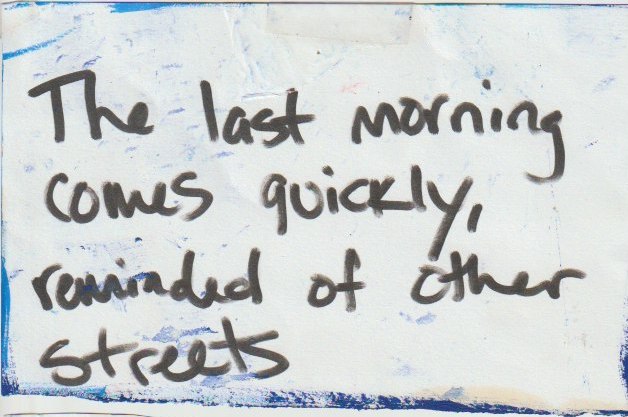 The last morning
comes quickly,
reminded of other
streets